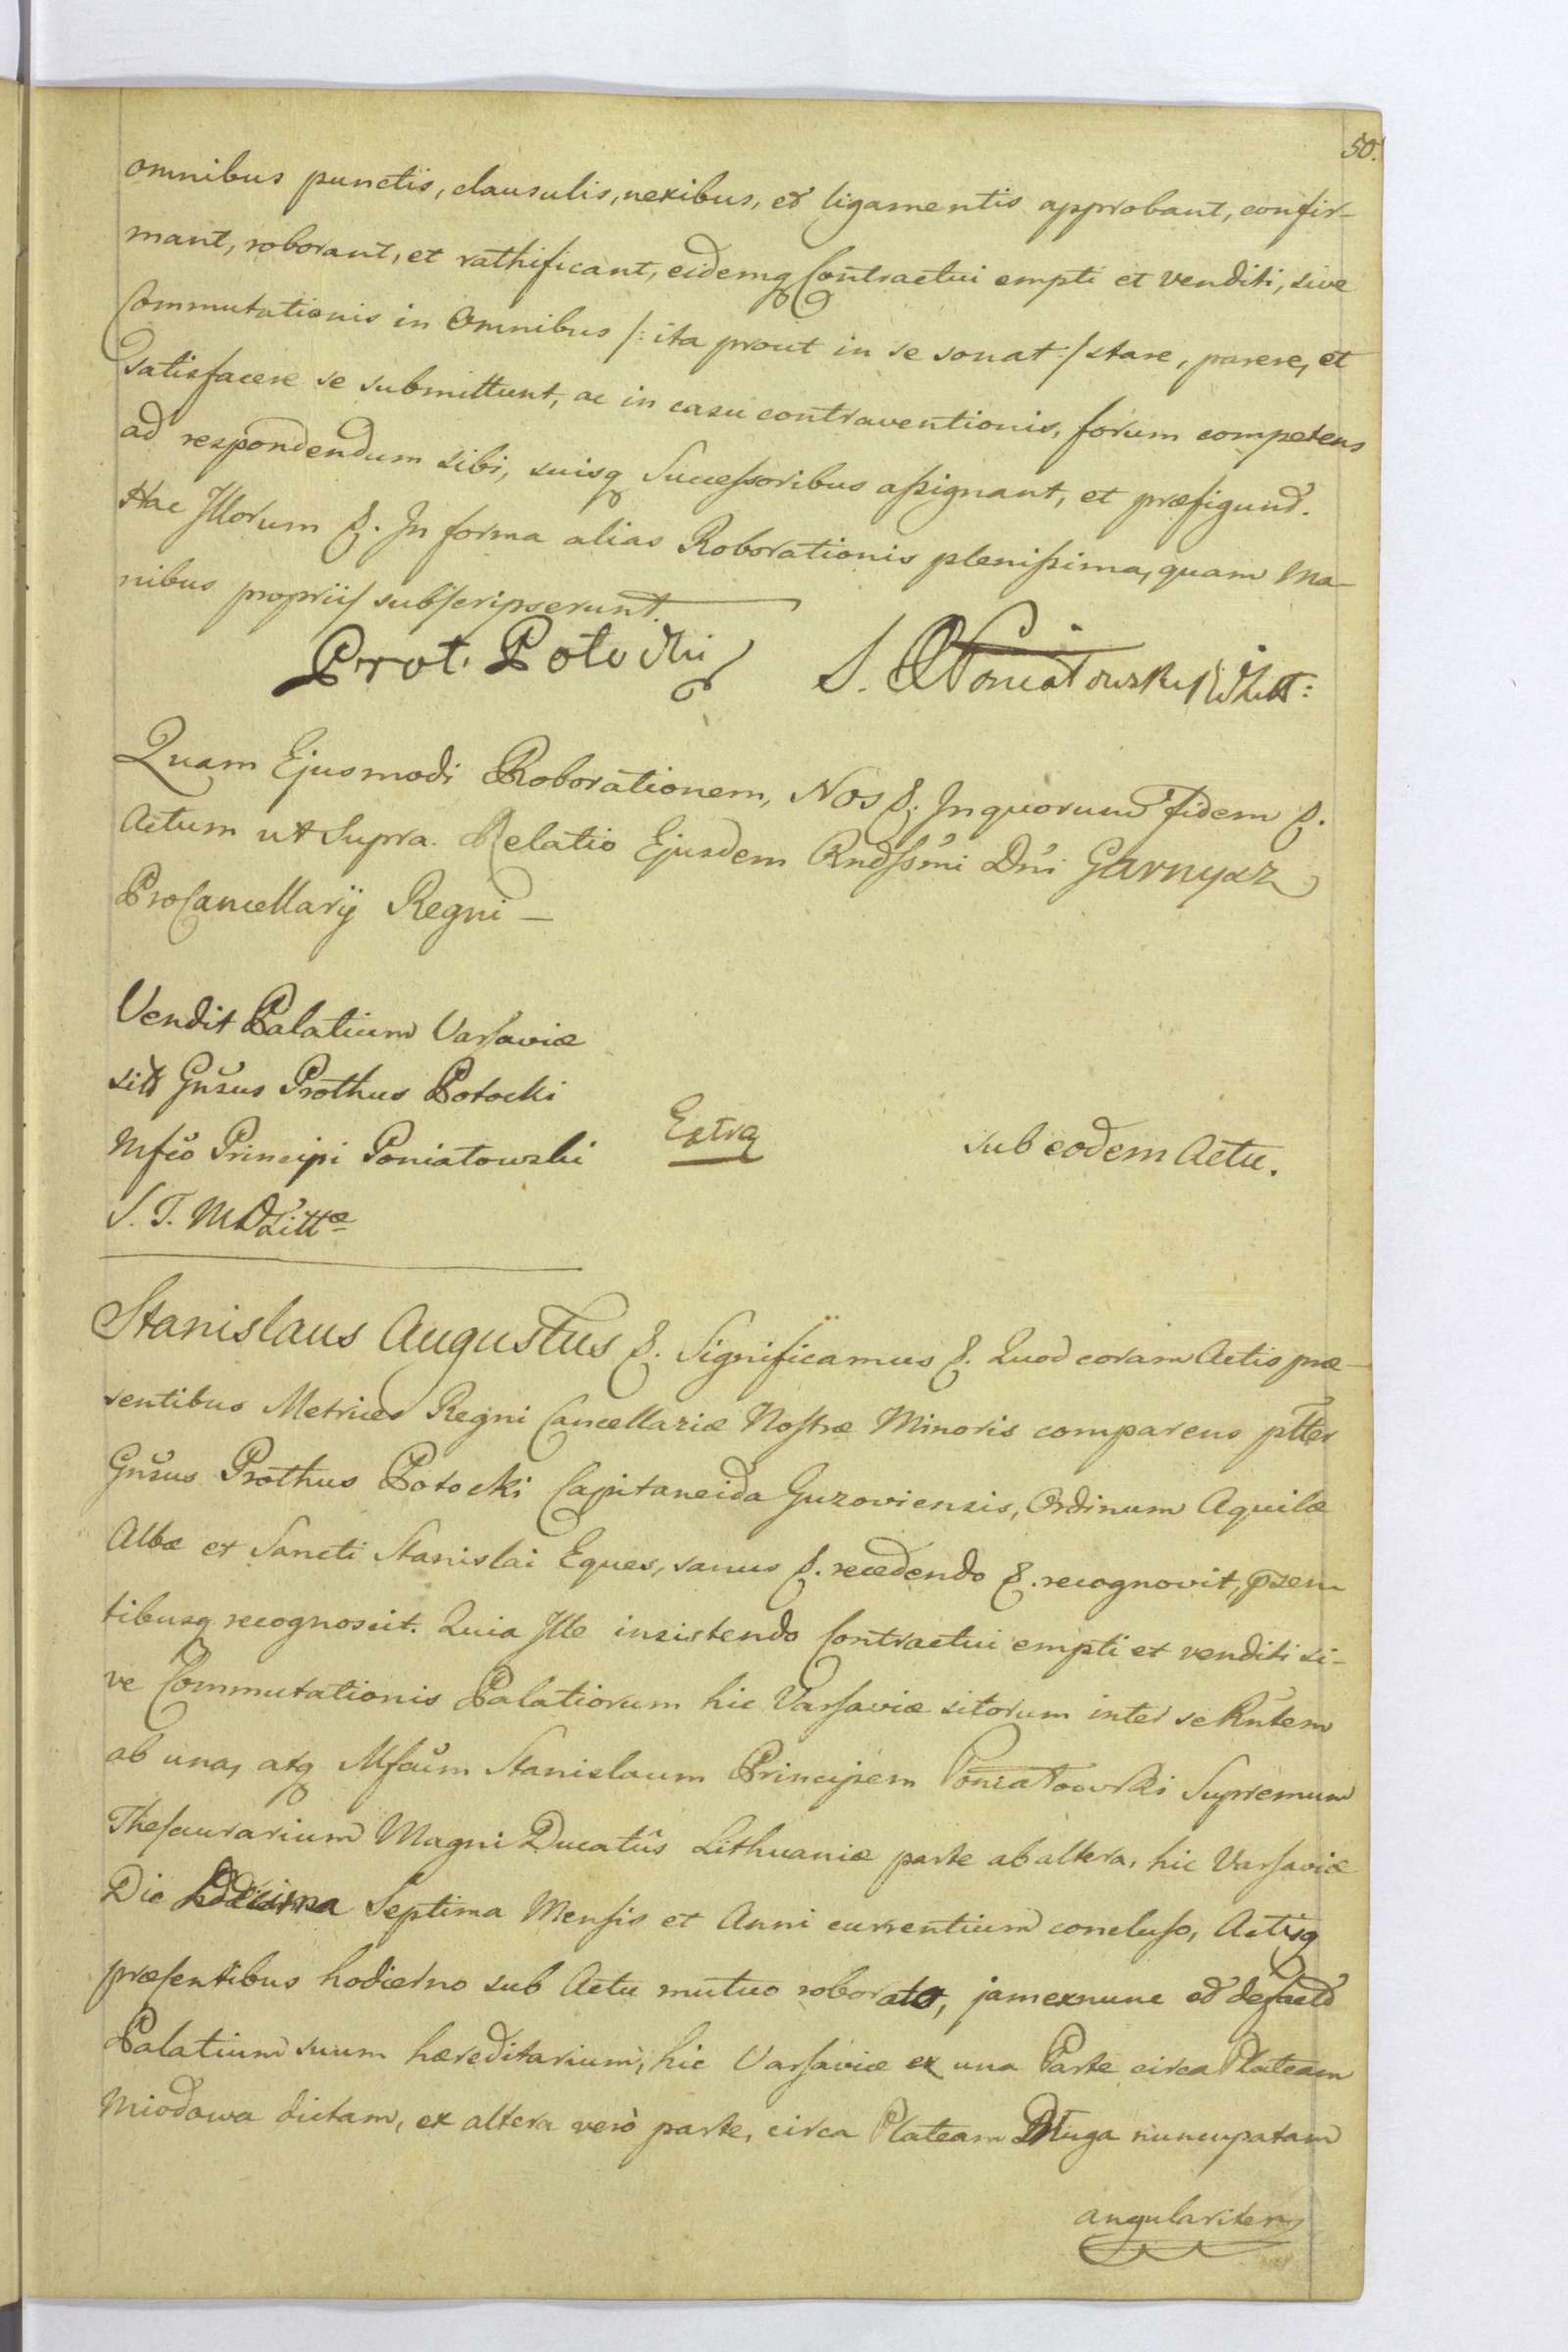 50.
omnibus punctis, clausulis, nexibus, et ligamentis approbant, confir-
mant, roborant, et rathificant, eidemq Contractui empti et venditi, sive
Commutationis in Omnibus /: ita prout in se sonat :/ stare, parere, et
satisfacere se submittunt, ac in casu contraventionis, forum competens
ad respondendum sibi, suisq Successoribus assignant, et præfigunt.
Hac Illorum &. In forma alias Roborationis plenissima, quam Ma-
nibus propriis subscripserunt.
Prot. Potocki S. X Poniatowski
Quam Ejusmodi Roborationem, Nos &. In quorum fidem &.
Actum ut Supra. Relatio Ejusdem Rndssmi Dni Garnysz
ProCancellarij Regni —
Vendit Palatium Varsaviæ
sitt Gnsus Prothus Potocki
Mfco Principi Poniatowski
S. T. M D Littæ
Extra
sub eodem Actu.
Stanislaus Augustus &. Significamus &. Quod coram Actis præ-
sentibus Metrices Regni Cancellariæ Nostræ Minoris comparens ptter
Gnsus Prothus Potocki Capitaneida Guzoviensis, Ordinum Aquilæ
Albæ et Sancti Stanislai Eques, sanus &. recedendo &. recognovit, pzen
tibusq recognoscit. Quia Ille insistendo Contractui empti et venditi si-
ve Commutationis Palatiorum hic Varsaviæ sitorum inter se Rntem
ab una, atq Mfcum Stanislaum Principem Poniatowski Supremum
Thesaurarium Magni Ducatûs Lithuaniæ parte ab altera, hic Varsaviæ
Die Decima Septima Mensis et Anni currentium concluso, Actisq
præsentibus hodierno sub Actu mutuo roborato, jam ex nunc et defacto
Palatium suum hæreditarium, hic Varsaviæ ex una Parte circa Plateam
Miodowa dictam, ex altera verò parte, circa Plateam Długa nuncupatam
angulariter